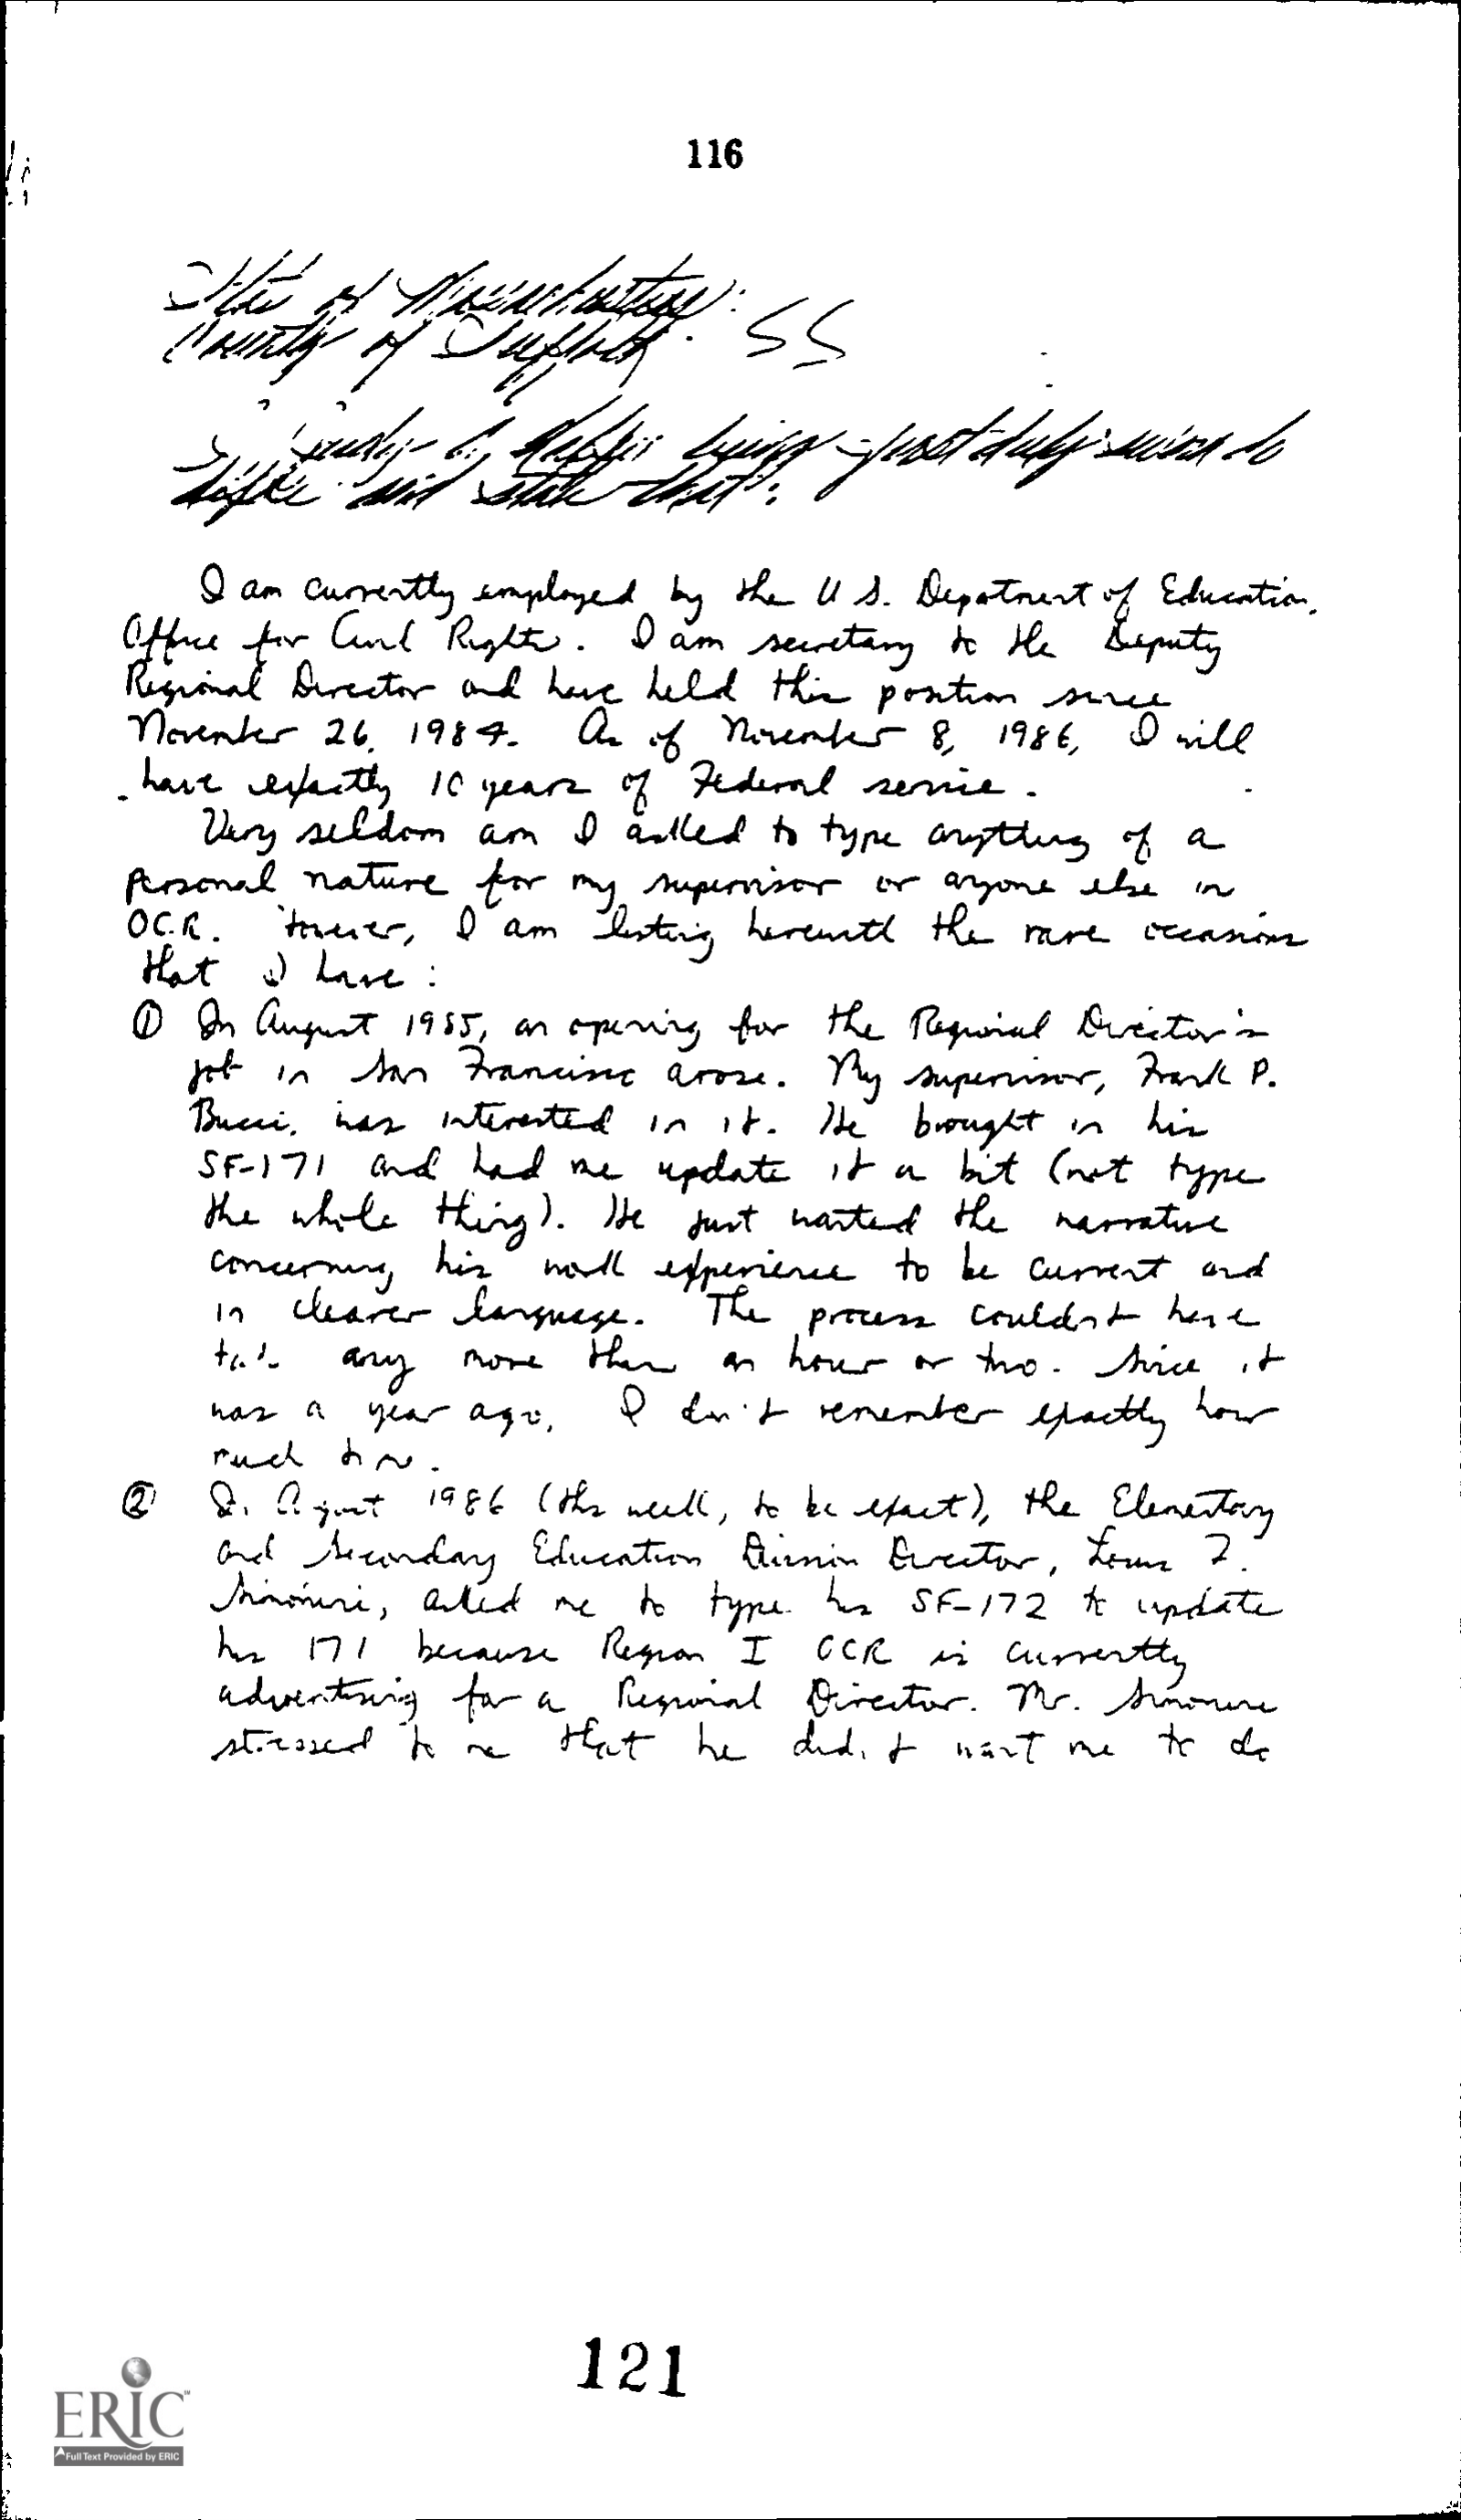 116
State of Massachusetts:
County of Suffolk: SS
being first duly sworn do
and state that:
I am currently employed by the U.S. Department of Education,
Office for Civil Rights. I am secretary to the Deputy
Regional Director and have held this position since
November 26, 1984. As of November 8, 1986, I will
have exactly 10 years of Federal service.
Very seldom am I asked to type anything of a
personal nature for my supervisor or anyone else in
OCR. However, I am listing herewith the rare occasions
that I have:
① In August 1985, an opening for the Regional Director's
job in San Francisco arose. My supervisor, Frank P.
Bucci, was interested in it. He brought in his
SF-171 and had me update it a bit (not type
the whole thing). He just wanted the narrative
concerning his work experience to be current and
in clearer language. The process couldn't have
any more than an hour or two. Since it
was a year ago, I don't remember exactly how
much time.
② In August 1986 (this week, to be exact), the Elementary
and Secondary Education Division Director, Louis F.
asked me to type his SF-172 to update
his 171 because Region I OCR is currently
advertising for a Regional Director. Mr.
stressed to me that he didn't want me to do
121
ERIC
Full Text Provided by ERIC